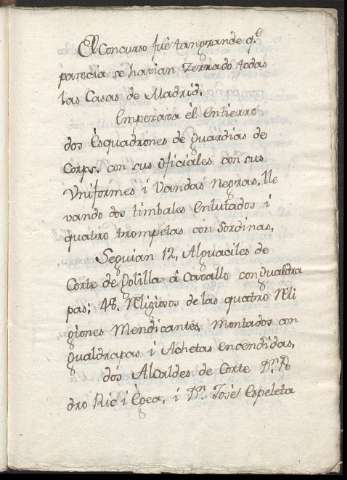 El Concurso fué tan grande q.e
parecia se havian Zerrado todas
las Casas de Madrid.
Empezava él entierro
dos Esquadrones de guardias de
Corps. con sus oficiales con sus
Vniformes i Vandas Negras, lle
vando dos timbales enlutados i
quatro trompetas con sordinas,
Seguian 12, Alguaciles de
Corte de golilla á Cavallo con gualdra
pas; 48. Religiosos de las quatro Reli
giones Mendicantes Montados con
gualdrapas i Achetas encendidas,
dos Alcaldes de Corte D.n Pe
dro Ric i Egea, i D.n Josef Espeleta